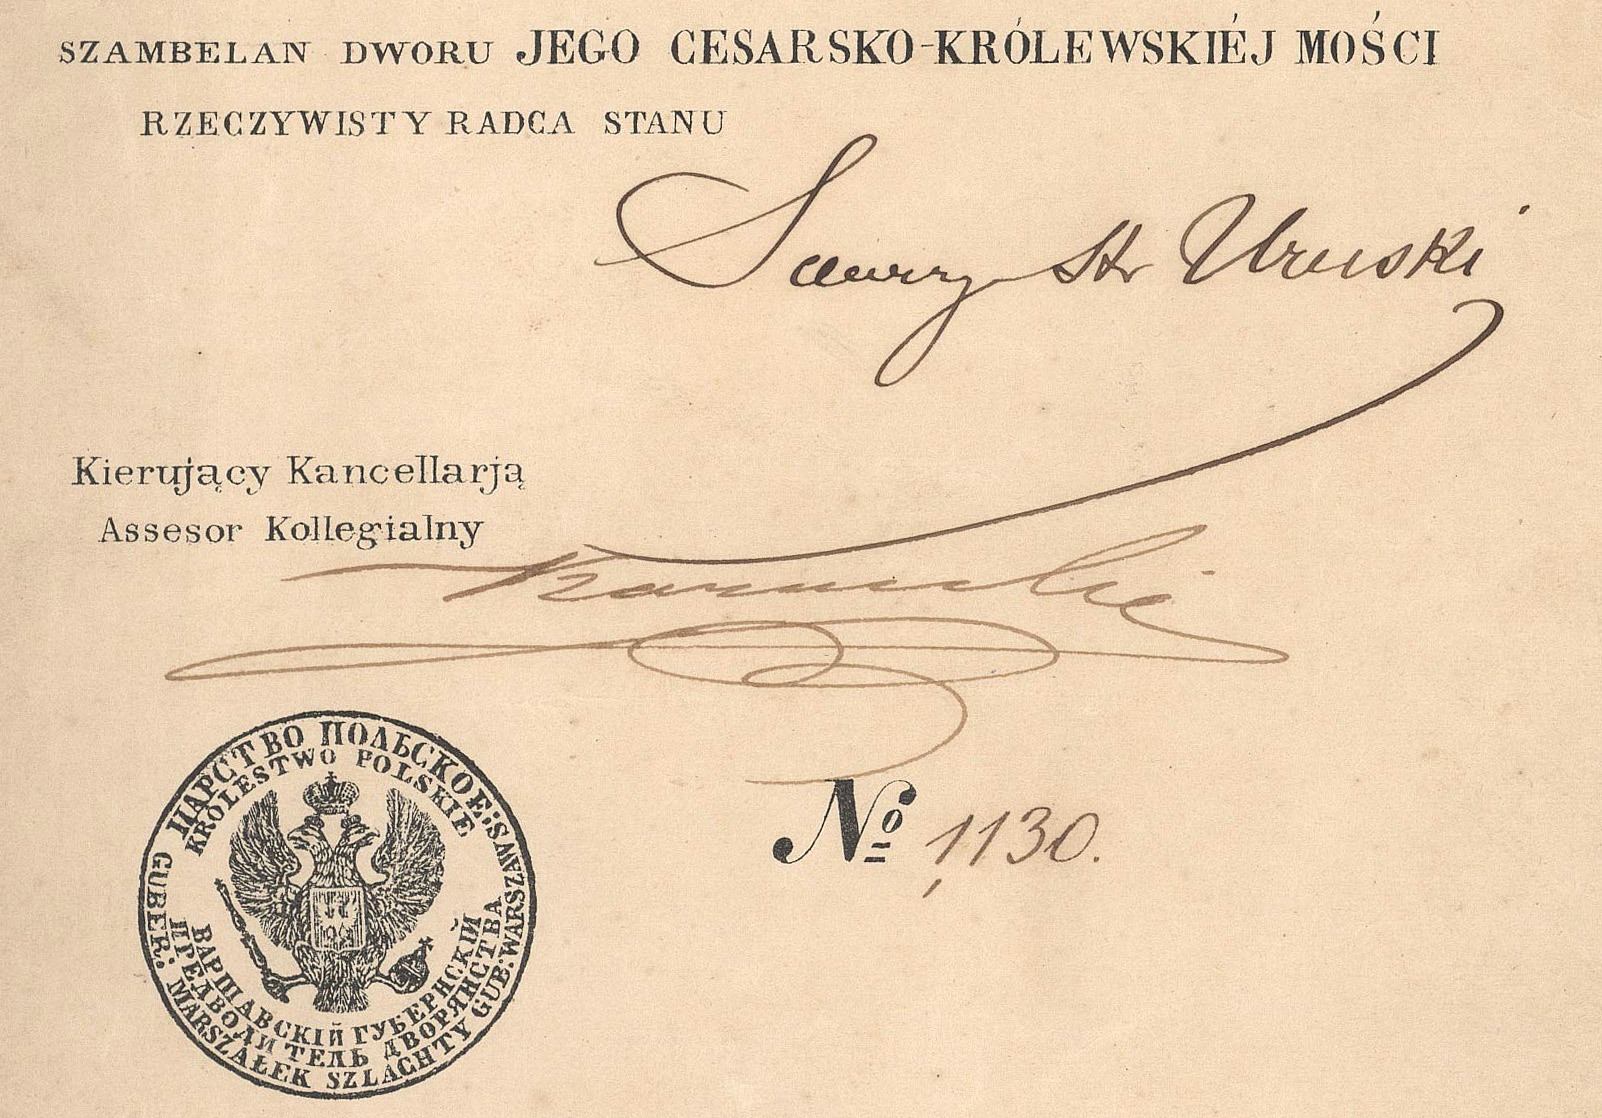 SZAMBELAN DWORU JEGO CESARSKO-KRÓLEWSKIÉJ MOŚCI
RZECZYWISTY RADCA STANU
Seweryn Hr Uruski
Kierujący Kancellarją
Assesor Kollegialny
№ 1,130.
ЦАРСТВО ПОЛЬСКОЕ:
KRÓLESTWO POLSKIE
ВАРШАВСКІЙ ГУБЕРНСКІЙ
ПРЕДВОДИТЕЛЬ ДВОРЯНСТВА
GUBER: MARSZAŁEK SZLACHTY GUB: WARSZAWS: